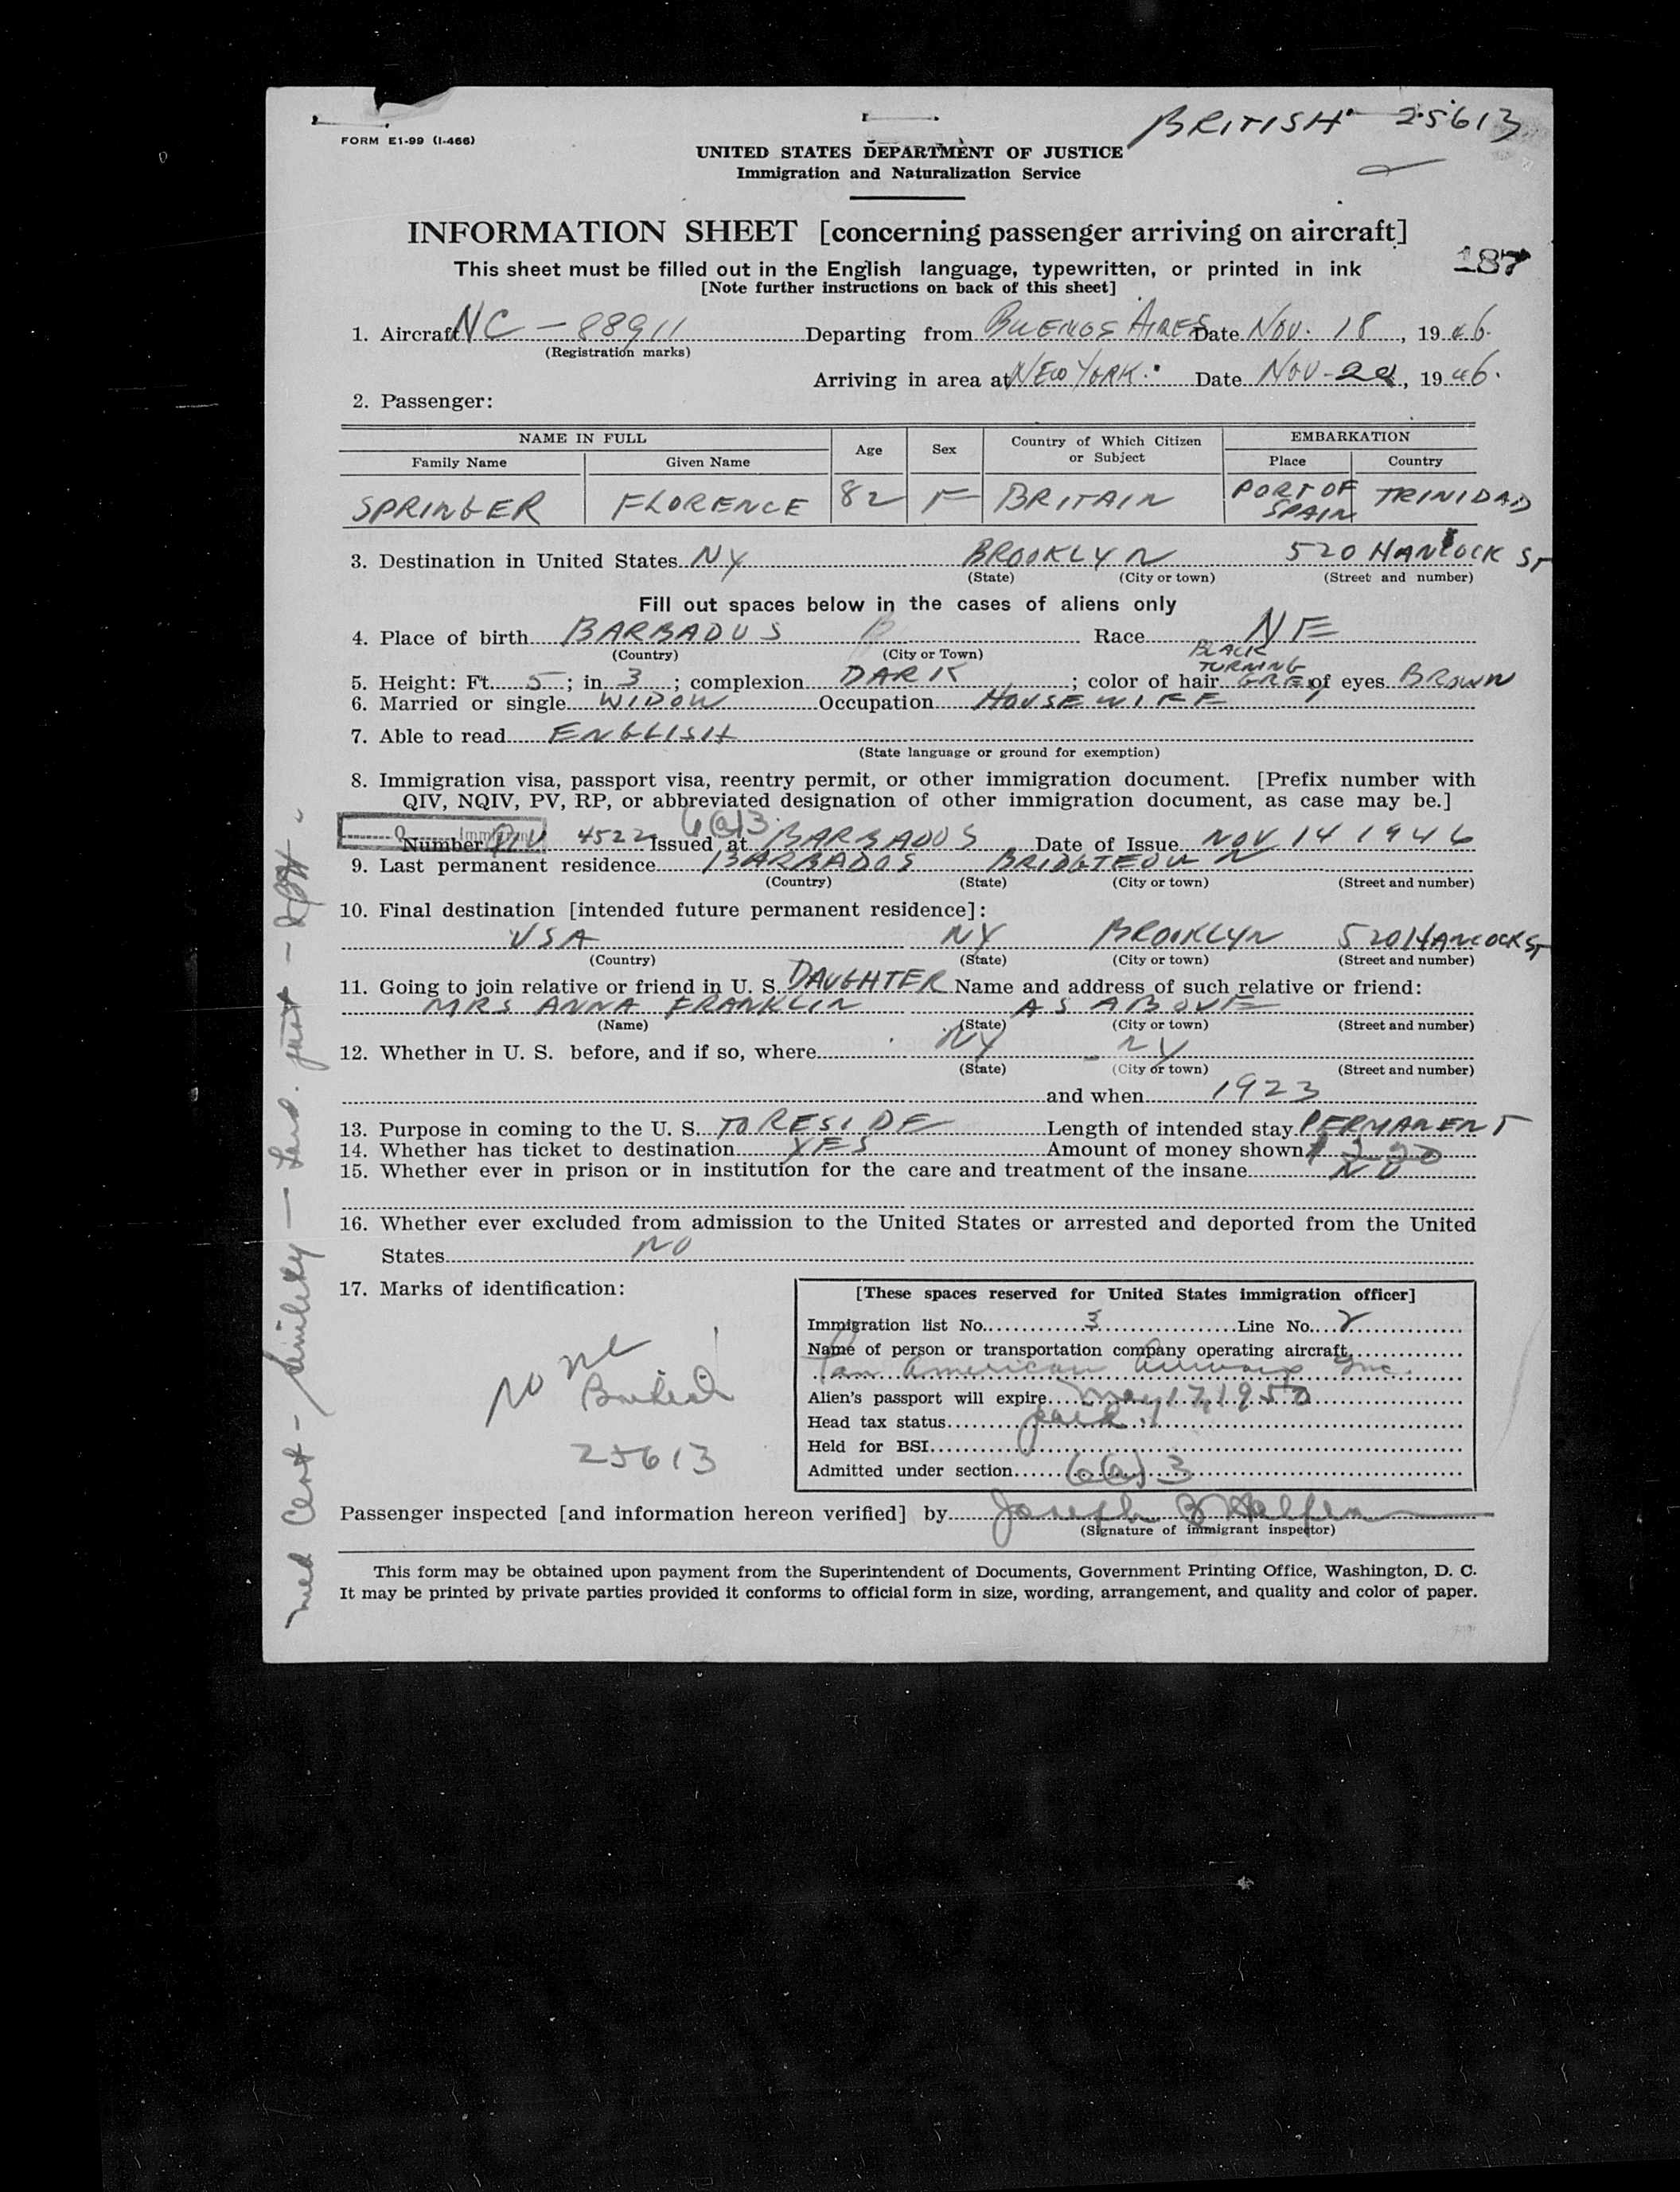 BRITISH 25613
FORM E1-99 (I-466)
UNITED STATES DEPARTMENT OF JUSTICE
Immigration and Naturalization Service
INFORMATION SHEET [concerning passenger arriving on aircraft]
187
This sheet must be filled out in the English language, typewritten, or printed in ink
[Note further instructions on back of this sheet]
1. Aircraft NC-88911 Departing from BUENOS AIRES Date NOV. 18, 1946.
(Registration marks)
Arriving in area at NEW YORK. Date NOV-20, 1946.
2. Passenger:
NAME IN FULL Age Sex Country of Which Citizen or Subject EMBARKATION
Family Name Given Name Place Country
SPRINGER FLORENCE 82 F BRITAIN PORT OF SPAIN TRINIDAD
3. Destination in United States NY BROOKLYN 520 HANCOCK ST
(State) (City or town) (Street and number)
Fill out spaces below in the cases of aliens only
4. Place of birth BARBADUS B Race NE
(Country) (City or Town)
BLACK
TURNING
5. Height: Ft. 5; in 3; complexion DARK; color of hair GREY of eyes BROWN
6. Married or single WIDOW Occupation HOUSEWIFE
7. Able to read ENGLISH
(State language or ground for exemption)
8. Immigration visa, passport visa, reentry permit, or other immigration document. [Prefix number with
QIV, NQIV, PV, RP, or abbreviated designation of other immigration document, as case may be.]
6(a)3
Number QIV 4522 Issued at BARBADOS Date of Issue NOV 14 1946
9. Last permanent residence BARBADOS BRIDGTEOWN
(Country) (State) (City or town) (Street and number)
10. Final destination [intended future permanent residence]:
USA NY BROOKLYN 520 HANCOCK ST
(Country) (State) (City or town) (Street and number)
11. Going to join relative or friend in U. S. DAUGHTER Name and address of such relative or friend:
MRS ANNA FRANKLIN AS ABOVE
(Name) (State) (City or town) (Street and number)
12. Whether in U. S. before, and if so, where NY - NY
(State) (City or town) (Street and number)
and when 1923
13. Purpose in coming to the U. S. TO RESIDE Length of intended stay PERMANENT
14. Whether has ticket to destination YES Amount of money shown $220
15. Whether ever in prison or in institution for the care and treatment of the insane NO
16. Whether ever excluded from admission to the United States or arrested and deported from the United
States NO
17. Marks of identification:
None
British
25613
[These spaces reserved for United States immigration officer]
Immigration list No. 3 Line No. 2
Name of person or transportation company operating aircraft
Pan American Airways Inc.
Alien's passport will expire May 17, 1950
Head tax status paid
Held for BSI
Admitted under section 6(a)3
Passenger inspected [and information hereon verified] by Joseph B Halpern
(Signature of immigrant inspector)
This form may be obtained upon payment from the Superintendent of Documents, Government Printing Office, Washington, D. C.
It may be printed by private parties provided it conforms to official form in size, wording, arrangement, and quality and color of paper.
Med Cert - Senility